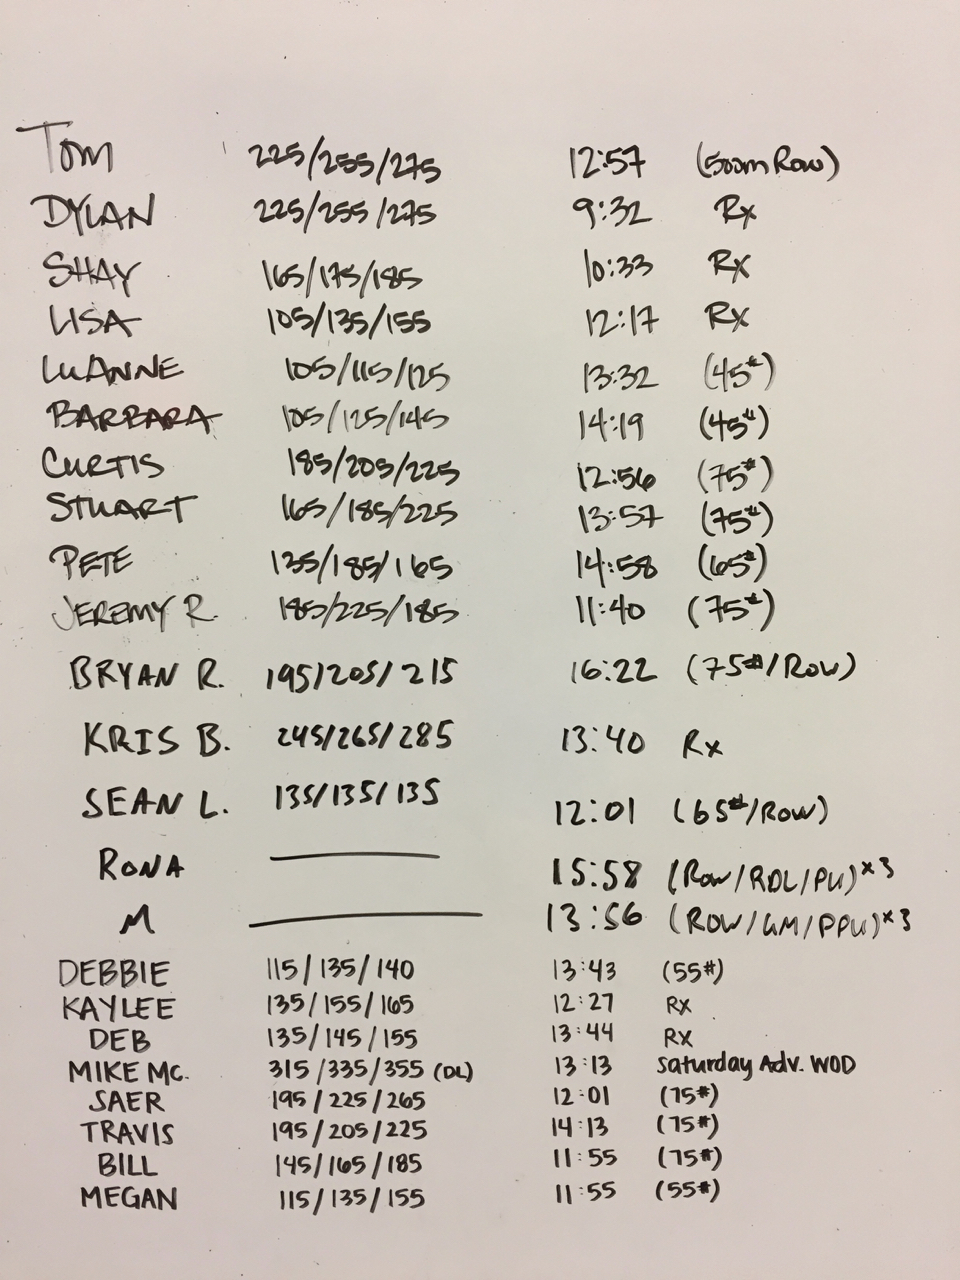 Tom 225/255/275 12:57 (500m Row)
DYLAN 225/255/275 9:32 Rx
SHAY 165/175/185 10:33 Rx
LISA 105/135/155 12:17 Rx
LUANNE 105/115/125 13:32 (45#)
BARBARA 105/125/145 14:19 (45#)
CURTIS 185/205/225 12:56 (75#)
STUART 165/185/225 13:57 (75#)
PETE 135/185/165 14:58 (65#)
JEREMY R. 185/225/185 11:40 (75#)
BRYAN R. 195/205/215 16:22 (75#/Row)
KRIS B. 245/265/285 13:40 Rx
SEAN L. 135/135/135 12:01 (65#/Row)
RONA 15:58 (Row/RDL/PU)x3
M 13:56 (ROW/GM/PPU)x3
DEBBIE 115/135/140 13:43 (55#)
KAYLEE 135/155/165 12:27 Rx
DEB 135/145/155 13:44 Rx
MIKE MC. 315/335/355 (DL) 13:13 Saturday Adv. WOD
SAER 195/225/265 12:01 (75#)
TRAVIS 195/205/225 14:13 (75#)
BILL 145/165/185 11:55 (75#)
MEGAN 115/135/155 11:55 (55#)